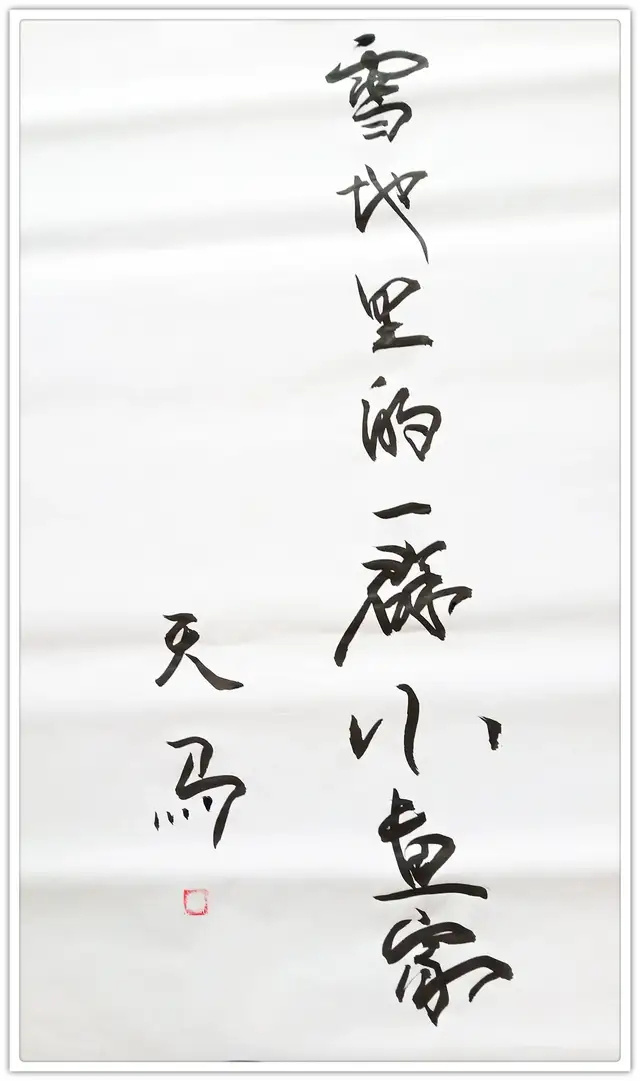 雪地里的一群小画家
天马